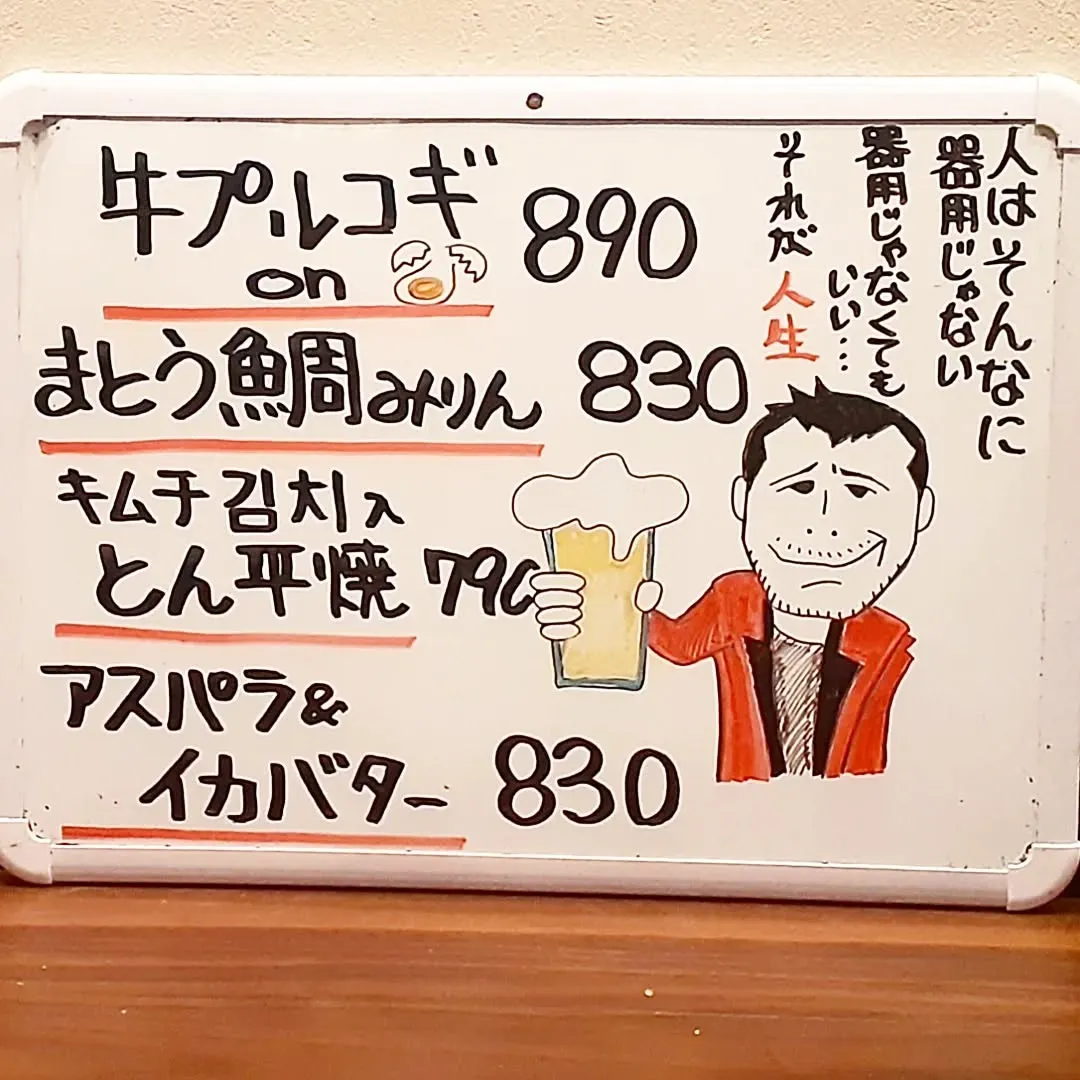 牛プルコギ 890
on
まとう鯛みりん 830
キムチ 김치入
とん平焼 790
アスパラ&
イカバター 830
人はそんなに
器用じゃない
器用じゃなくても
いい…
それが人生